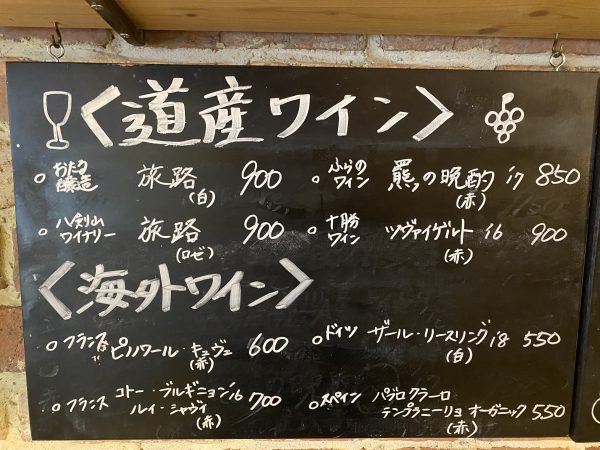 〈道産ワイン〉
○ おたる醸造 旅路(白) 900
○ ふらのワイン 羆の晩酌(赤) '17 850
○ 八剣山ワイナリー 旅路(ロゼ) 900
○ 十勝ワイン ツヴァイゲルト(赤) '16 900
〈海外ワイン〉
○ フランス ピノノワール・キュヴェ(赤) 600
○ ドイツ ザール・リースリング(白) '18 550
○ フランス コトー・ブルギニョン'16 ルイ・シャヴィ(赤) 700
○ スペイン パヴロクラーロ テンプラニーリョ オーガニック(赤) 550